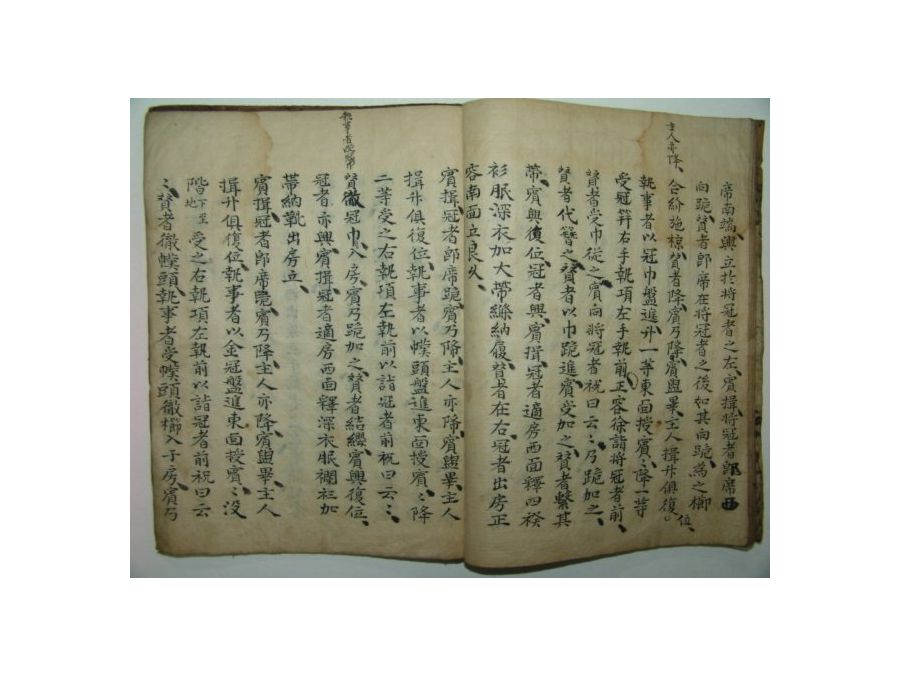 席南端興立於將冠者之左賓揖將冠者卽席西
向跪贊者卽席在將冠者之後如其向跪爲之櫛
合紒施掠贊者降賓乃降賓盥畢主人揖升俱復位
主人亦降
執事者以冠巾盤進升一等東面授賓〻降一等
受冠笄右手執項左手執前正容徐詣將冠者前
贊者受巾從之賓向將冠者祝曰云〻乃跪加之
贊者代簪之贊者以巾跪進賓受加之贊者繫其
帶賓興復位冠者興賓揖冠者適房西面釋四䙆
衫服深衣加大帶絛納履贊者在右冠者出房正
容南面立良久
賓揖冠者卽席跪賓乃降主人亦降賓盥畢主人
揖升俱復位執事者以幞頭盤進東面授賓〻降
二等受之右執項左執前以詣冠者前祝曰云〻
贊徹冠巾入房賓乃跪加之贊者結纓賓興復位
冠者亦興賓揖冠者適房西面釋深衣服襴衫加
帶納靴出房立
賓揖冠者卽席跪賓乃降主人亦降賓盥畢主人
揖升俱復位執事者以金冠盤進東面授賓〻沒
階下至地受之右執項左執前以詣冠者前祝曰云
〻贊者徹幞頭執事者受幞頭徹櫛入于房賓乃